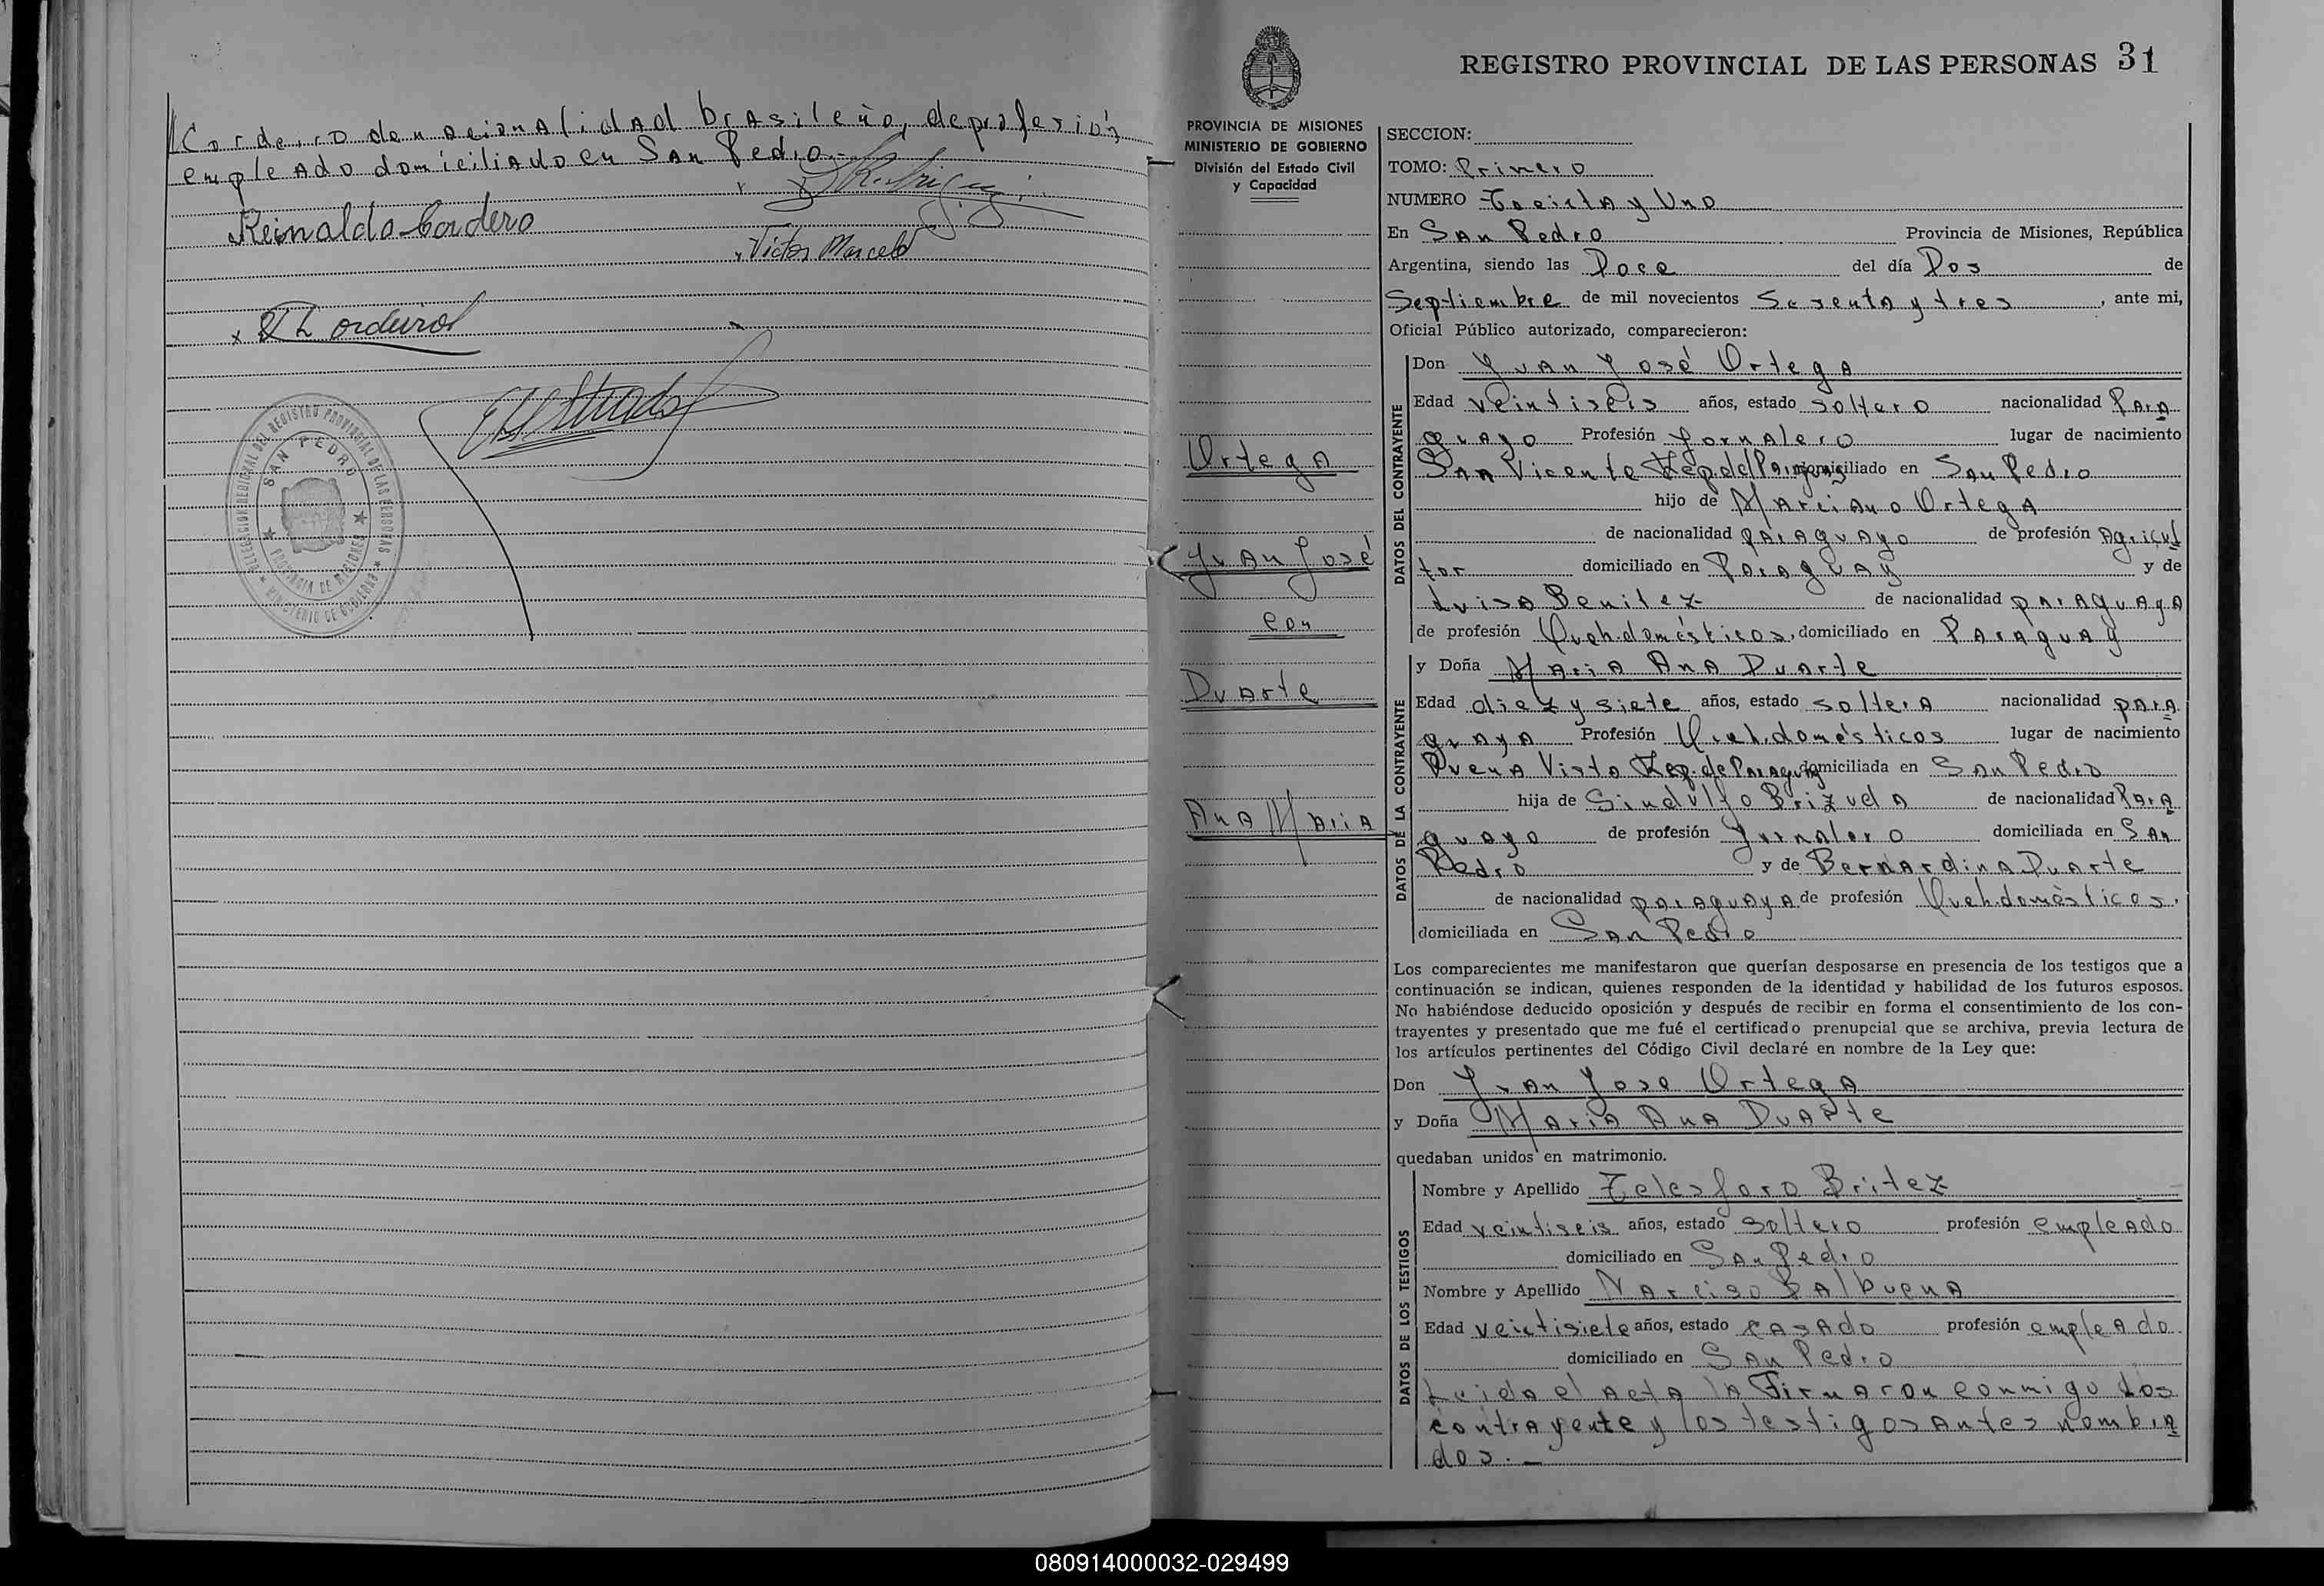 Cordeiro de nacionalidad brasileño, de profesión
empleado domiciliado en San Pedro.-
Reinaldo Cordero
Victor Marcelo
DELEGACION REGIONAL DEL REGISTRO PROVINCIAL DE LAS PERSONAS
SAN PEDRO
PROVINCIA DE MISIONES
MINISTERIO DE GOBIERNO
REGISTRO PROVINCIAL DE LAS PERSONAS 31
PROVINCIA DE MISIONES
MINISTERIO DE GOBIERNO
División del Estado Civil
y Capacidad
Ortega
Juan José
con
Duarte
Ana Maria
SECCION:
TOMO: Primero
NUMERO Treinta y Uno
En San Pedro Provincia de Misiones, República
Argentina, siendo las Doce del día Dos de
Septiembre de mil novecientos Sesenta y tres, ante mi,
Oficial Público autorizado, comparecieron:
DATOS DEL CONTRAYENTE
Don Juan José Ortega
Edad veintiseis años, estado soltero nacionalidad Para
guayo Profesión Jornalero lugar de nacimiento
San Vicente Rep. del Paraguay domiciliado en San Pedro
hijo de Marciano Ortega
de nacionalidad paraguayo de profesión Agricul
tor domiciliado en Paraguay y de
Luisa Benitez de nacionalidad paraguaya
de profesión Queh. domésticos, domiciliado en Paraguay
DATOS DE LA CONTRAYENTE
y Doña Maria Ana Duarte
Edad diez y siete años, estado soltera nacionalidad para
guaya Profesión Queh. domésticos lugar de nacimiento
Buena Vista Rep. de Paraguay domiciliada en San Pedro
hija de Sindulfo Brizuela de nacionalidad Para
guayo de profesión Jornalero domiciliada en San
Pedro y de Bernardina Duarte
de nacionalidad paraguaya de profesión Queh. domèsticos.
domiciliada en San Pedro
Los comparecientes me manifestaron que querían desposarse en presencia de los testigos que a
continuación se indican, quienes responden de la identidad y habilidad de los futuros esposos.
No habiéndose deducido oposición y después de recibir en forma el consentimiento de los con-
trayentes y presentado que me fué el certificado prenupcial que se archiva, previa lectura de
los artículos pertinentes del Código Civil declaré en nombre de la Ley que:
Don Juan Jose Ortega
y Doña Maria Ana Duarte
quedaban unidos en matrimonio.
DATOS DE LOS TESTIGOS
Nombre y Apellido Telesforo Britez
Edad veintiseis años, estado soltero profesión empleado
domiciliado en San Pedro
Nombre y Apellido Narciso Balbuena
Edad veintisiete años, estado casado profesión empleado.
domiciliado en San Pedro
Leida el acta la Firmaron conmigo los
contrayente y los testigos antes nombra
dos.-
080914000032-029499